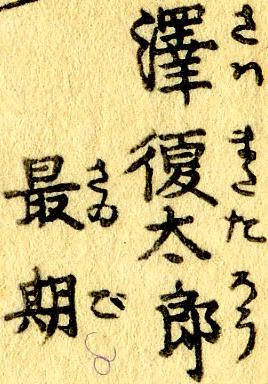 澤復太郎
さハまたたろう
最期
さゐご